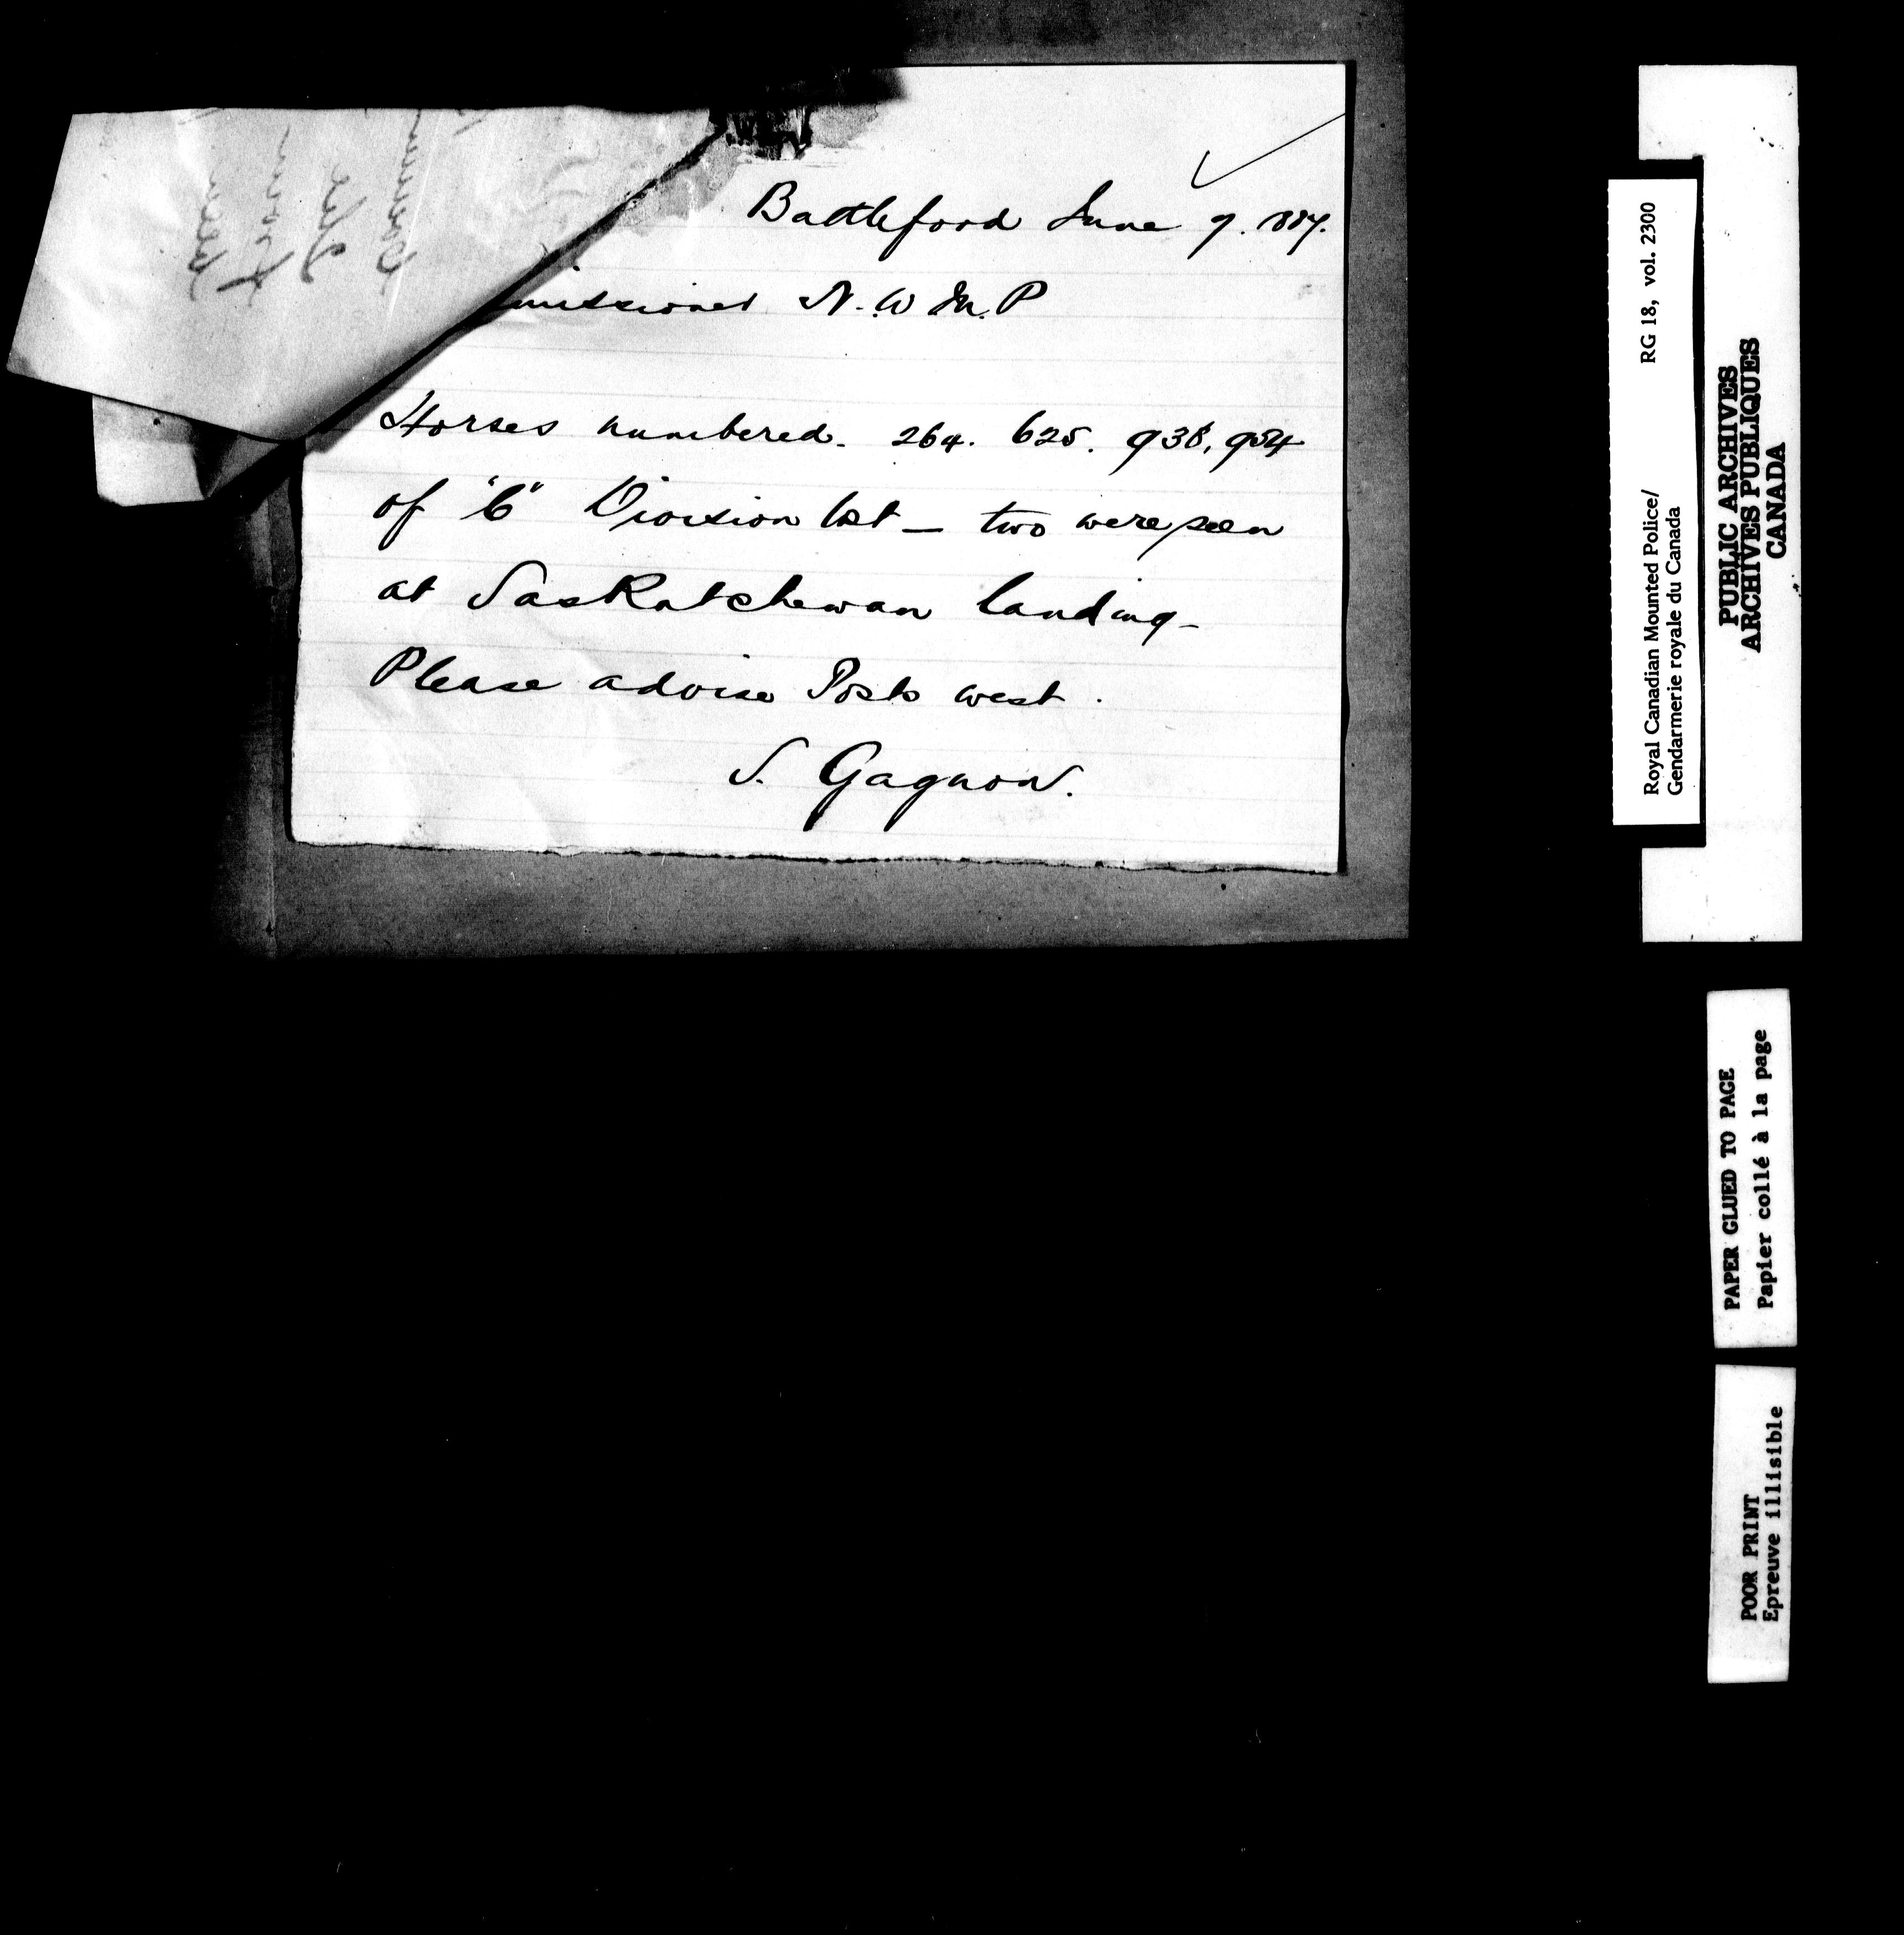 Battleford June 9. 1887.
mmissioner N.W.M.P
Horses numbered. 264. 625. 938, 954
of "C" Division lost - two were seen
at Saskatchewan landing -
Please advise Posts west.
S. Gagnon.
from
the
Royal Canadian Mounted Police/ RG 18, vol. 2300
Gendarmerie royale du Canada
PUBLIC ARCHIVES
ARCHIVES PUBLIQUES
CANADA
PAPER GLUED TO PAGE
Papier collé à la page
POOR PRINT
Epreuve illisible